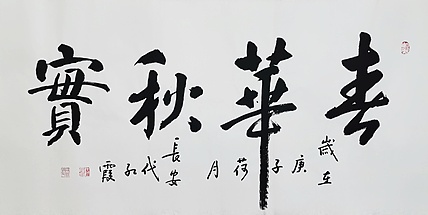 春華秋實
歲在庚子荷月長安代紅霞